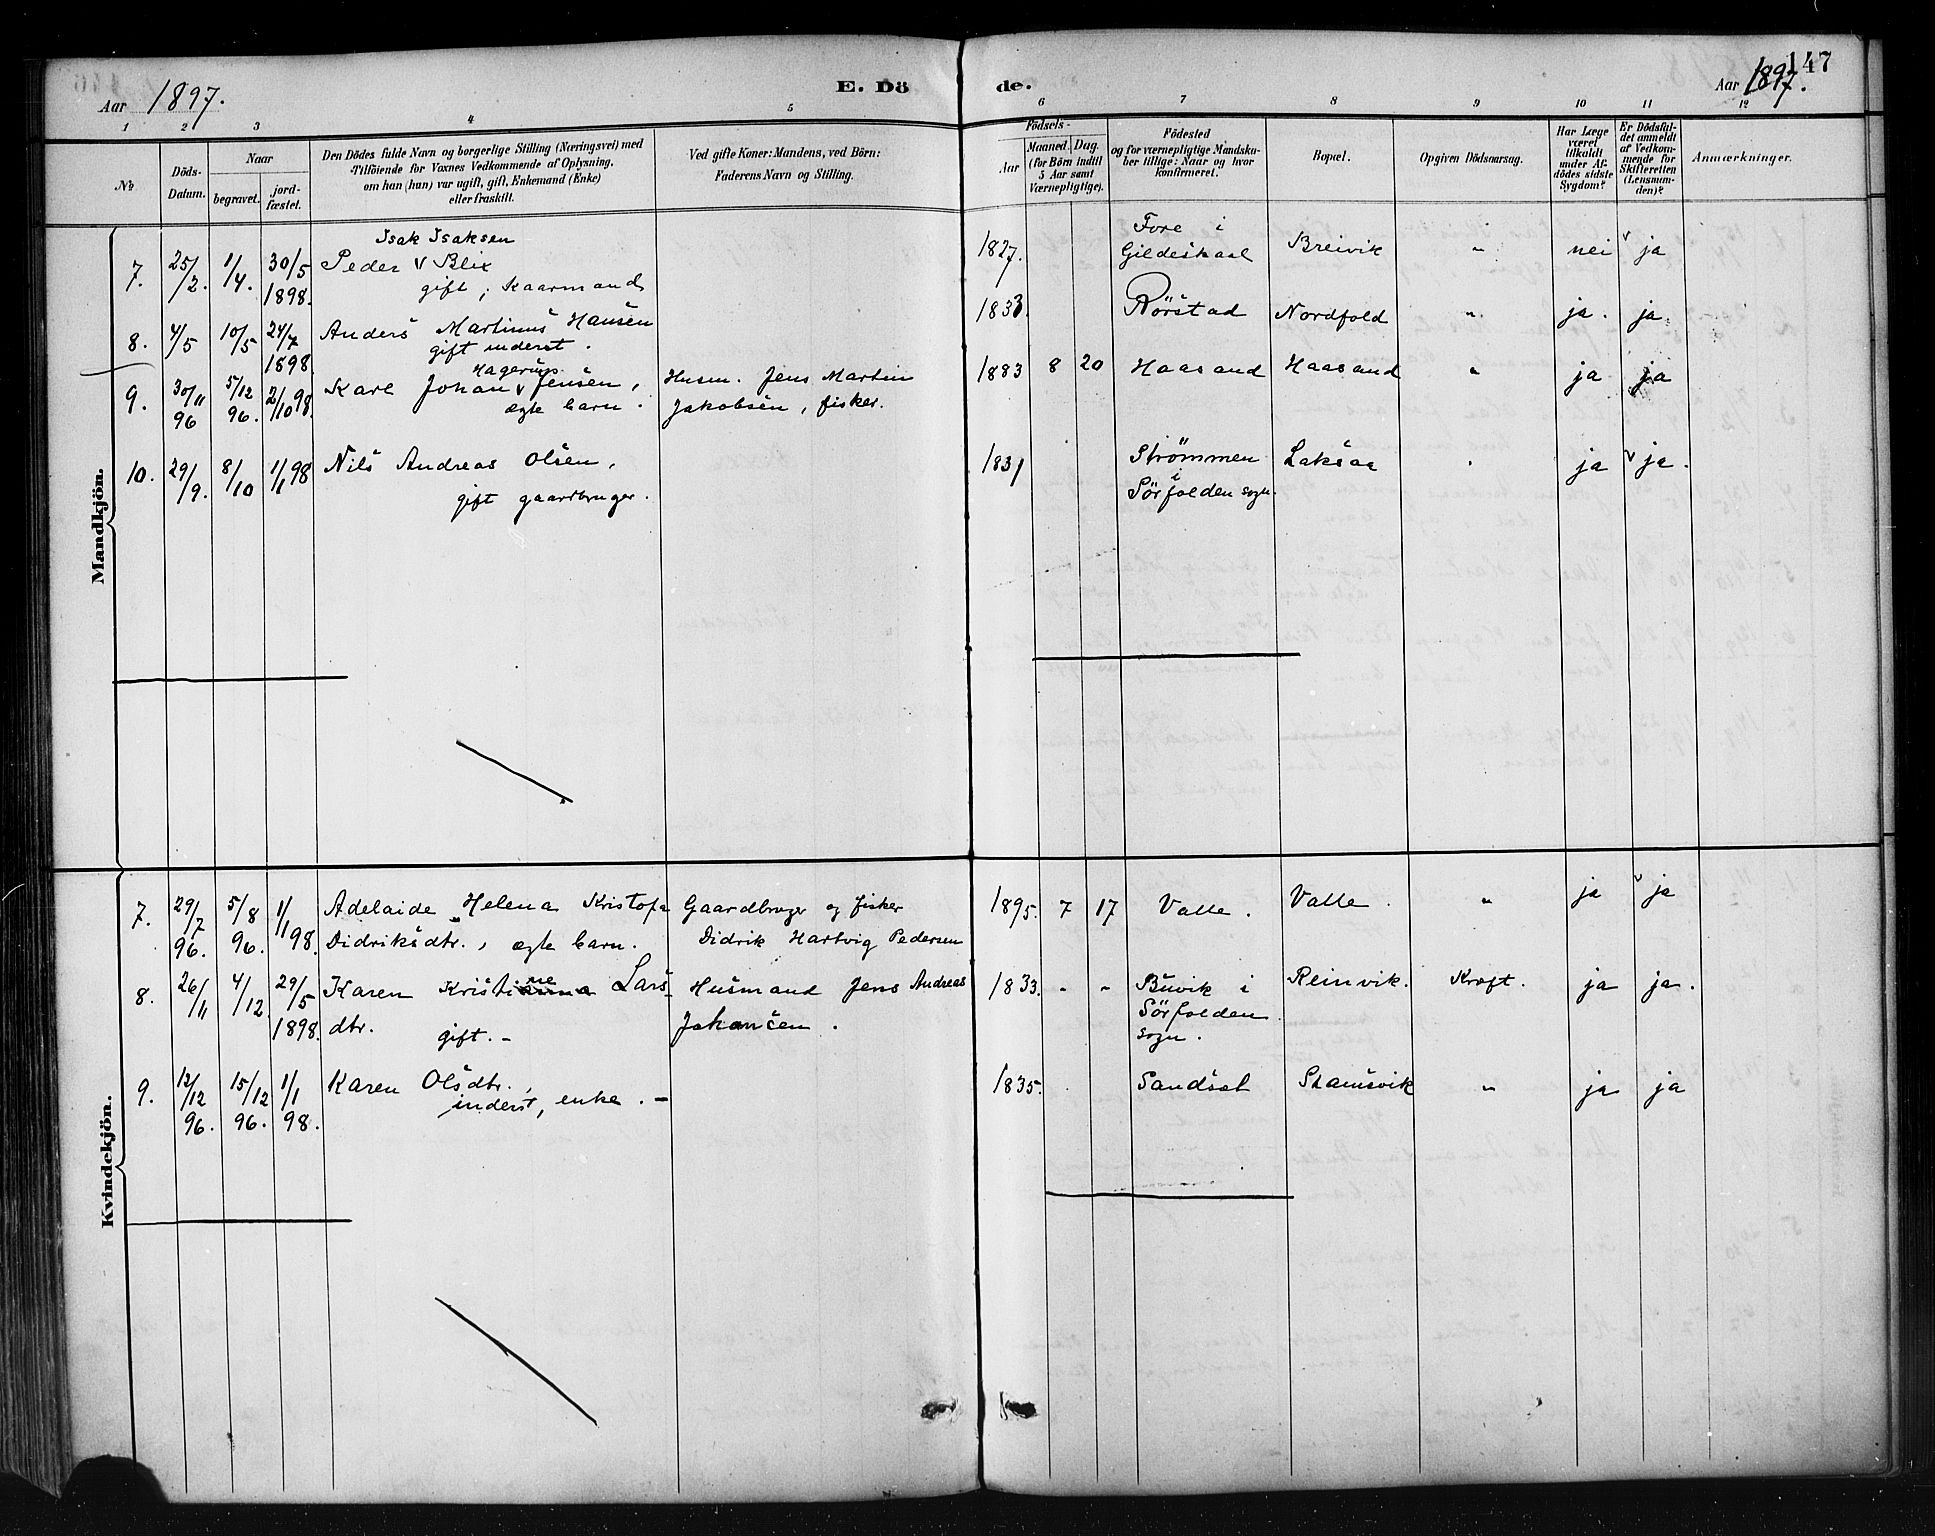 147
Aar 1897.
E. Dö
de.
Aar 1897.
1 2 3 4 5 6 7 8 9 10 11 12
№
Döds-
Datum.
Naar
begravet.
jord-
fæstet.
Den Dödes fulde Navn og borgerlige Stilling (Næringsvei) med
Tilföiende for Voxnes Vedkommende af Oplysning,
om han (hun) var ugift, gift, Enkemand (Enke)
eller fraskilt.
Ved gifte Koner: Mandens, ved Börn:
Faderens Navn og Stilling.
Födsels-
Aar
Maaned. Dag.
(for Börn indtil
5 Aar samt
Værnepligtige).
Födested
og for værnepligtige Mandska-
ber tillige: Naar og hvor
konfirmeret.
Bopæl.
Opgiven Dödsaarsag.
Har Læge
været
tilkaldt
under Af-
dödes sidste
Sygdom?
Er Dödsfal-
det anmeldt
af Vedkom-
mende for
Skifteretten
(Lensman-
den)?
Anmærkninger.
Mandkjön.
Isak Isaksen
7. 25/2. 1/4. 30/5 1898. Peder v Blix
gift, Kaarmand
1827. Fore i
Gildeskaal Breivik " nei v ja
8. 4/5 10/5 24/7 1898. Anders Martinus Hansen
gift inderst.
1833. Rörstad Nordfold " ja. ja.
Hagerup
9. 30/11 96 5/12 96. 2/10 98. Karl Johan v Jensen,
ægte barn.
Husm. Jens Martin
Jakobsen, fisker.
1883 8 20 Haasand Haasand " ja ja
10. 29/9. 8/10 1/1 98 Nils Andreas Olsen,
gift gaardbruger.
1831 Strömmen
i
Sörfolden sogn. Laksaa ja v ja.
Kvindekjön.
7. 29/7 96. 5/8 96. 1/1 98. Adelaide Helena Kristofa
Didriksdtr., ægte barn.
Gaardbruger og fisker
Didrik Hartvig Pedersen
1895. 7 17 Valle. Valle. " ja v ja
8. 26/11 4/12. 29/5 1898. Karen Kristine Lars-
dtr. gift. -
Husmand Jens Andreas
Johansen.
1833. " " Buvik i
Sörfolden
sogn. Reinvik. Kræft. ja ja.
9. 12/12 96. 15/12 96. 1/1 98. Karen Olsdtr.,
inderst, enke. -
1835. Sandset Stamsvik " ja ja